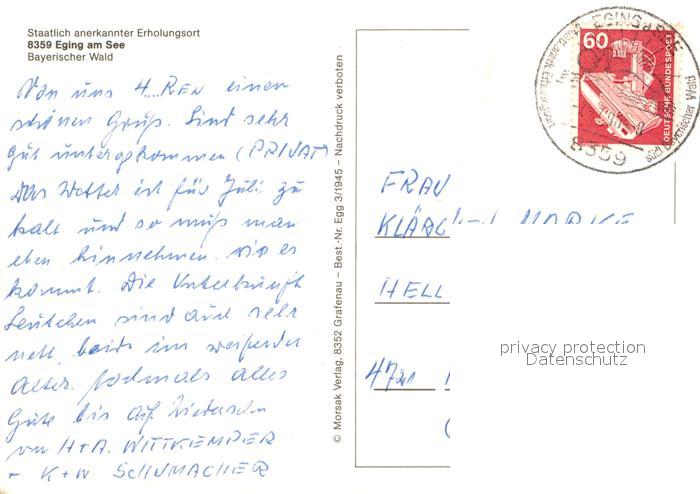 Staatlich anerkannter Erholungsort
8359 Eging am See
Bayerischer Wald
Von uns 4.... REN einen
schönen Gruß. Sind sehr
gut untergekommen (PRIVAT)
Das Wetter ist für Juli zu
kalt und so muß man
eben hinnehmen wie es
kommt. Die Unterkunft
Leutchen sind auch sehr
nett, beide im
Alter. Nochmals alles
Gute bis auf Wiedersehn
von H+A. WITTKEMPER
+ K+W. SCHUMACHER
© Morsak Verlag, 8352 Grafenau – Best.-Nr. Egg 3/1945 – Nachdruck verboten
60
DEUTSCHE BUNDESPOST
8359
FRAU
HELL
privacy protection
Datenschutz